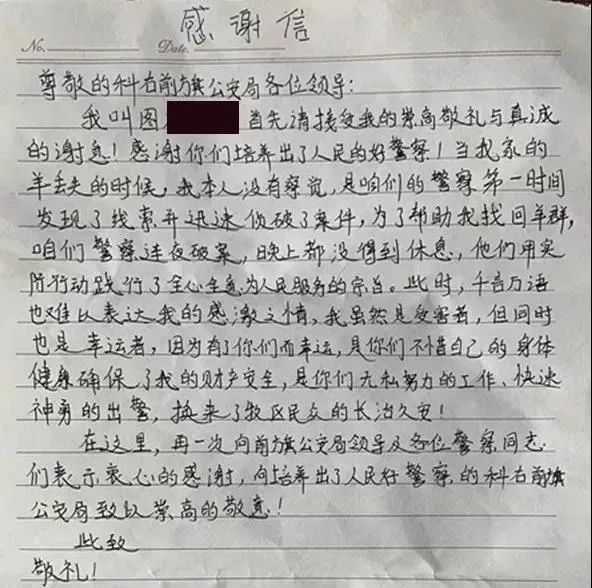 感谢信
No. Date.
尊敬的科右前旗公安局各位领导:
我叫图 首先请接受我的崇高敬礼与真诚
的谢意!感谢你们培养出了人民的好警察!当我家的
羊丢失的时候,我本人没有察觉,是咱们的警察第一时间
发现了线索并迅速侦破了案件,为了帮助我找回羊群,
咱们警察连夜破案,晚上都没得到休息,他们用实
际行动践行了全心全意为人民服务的宗旨。此时,千言万语
也难以表达我的感激之情,我虽然是受害者,但同时
也是幸运者,因为有了你们而幸运,是你们不惜自己的身体
健康确保了我的财产安全,是你们无私努力的工作、快速
神勇的出警,换来了牧区民众的长治久安!
在这里,再一次向前旗公安局领导及各位警察同志
们表示衷心的感谢,向培养出了人民好警察的科右前旗
公安局致以崇高的敬意!
此致
敬礼!